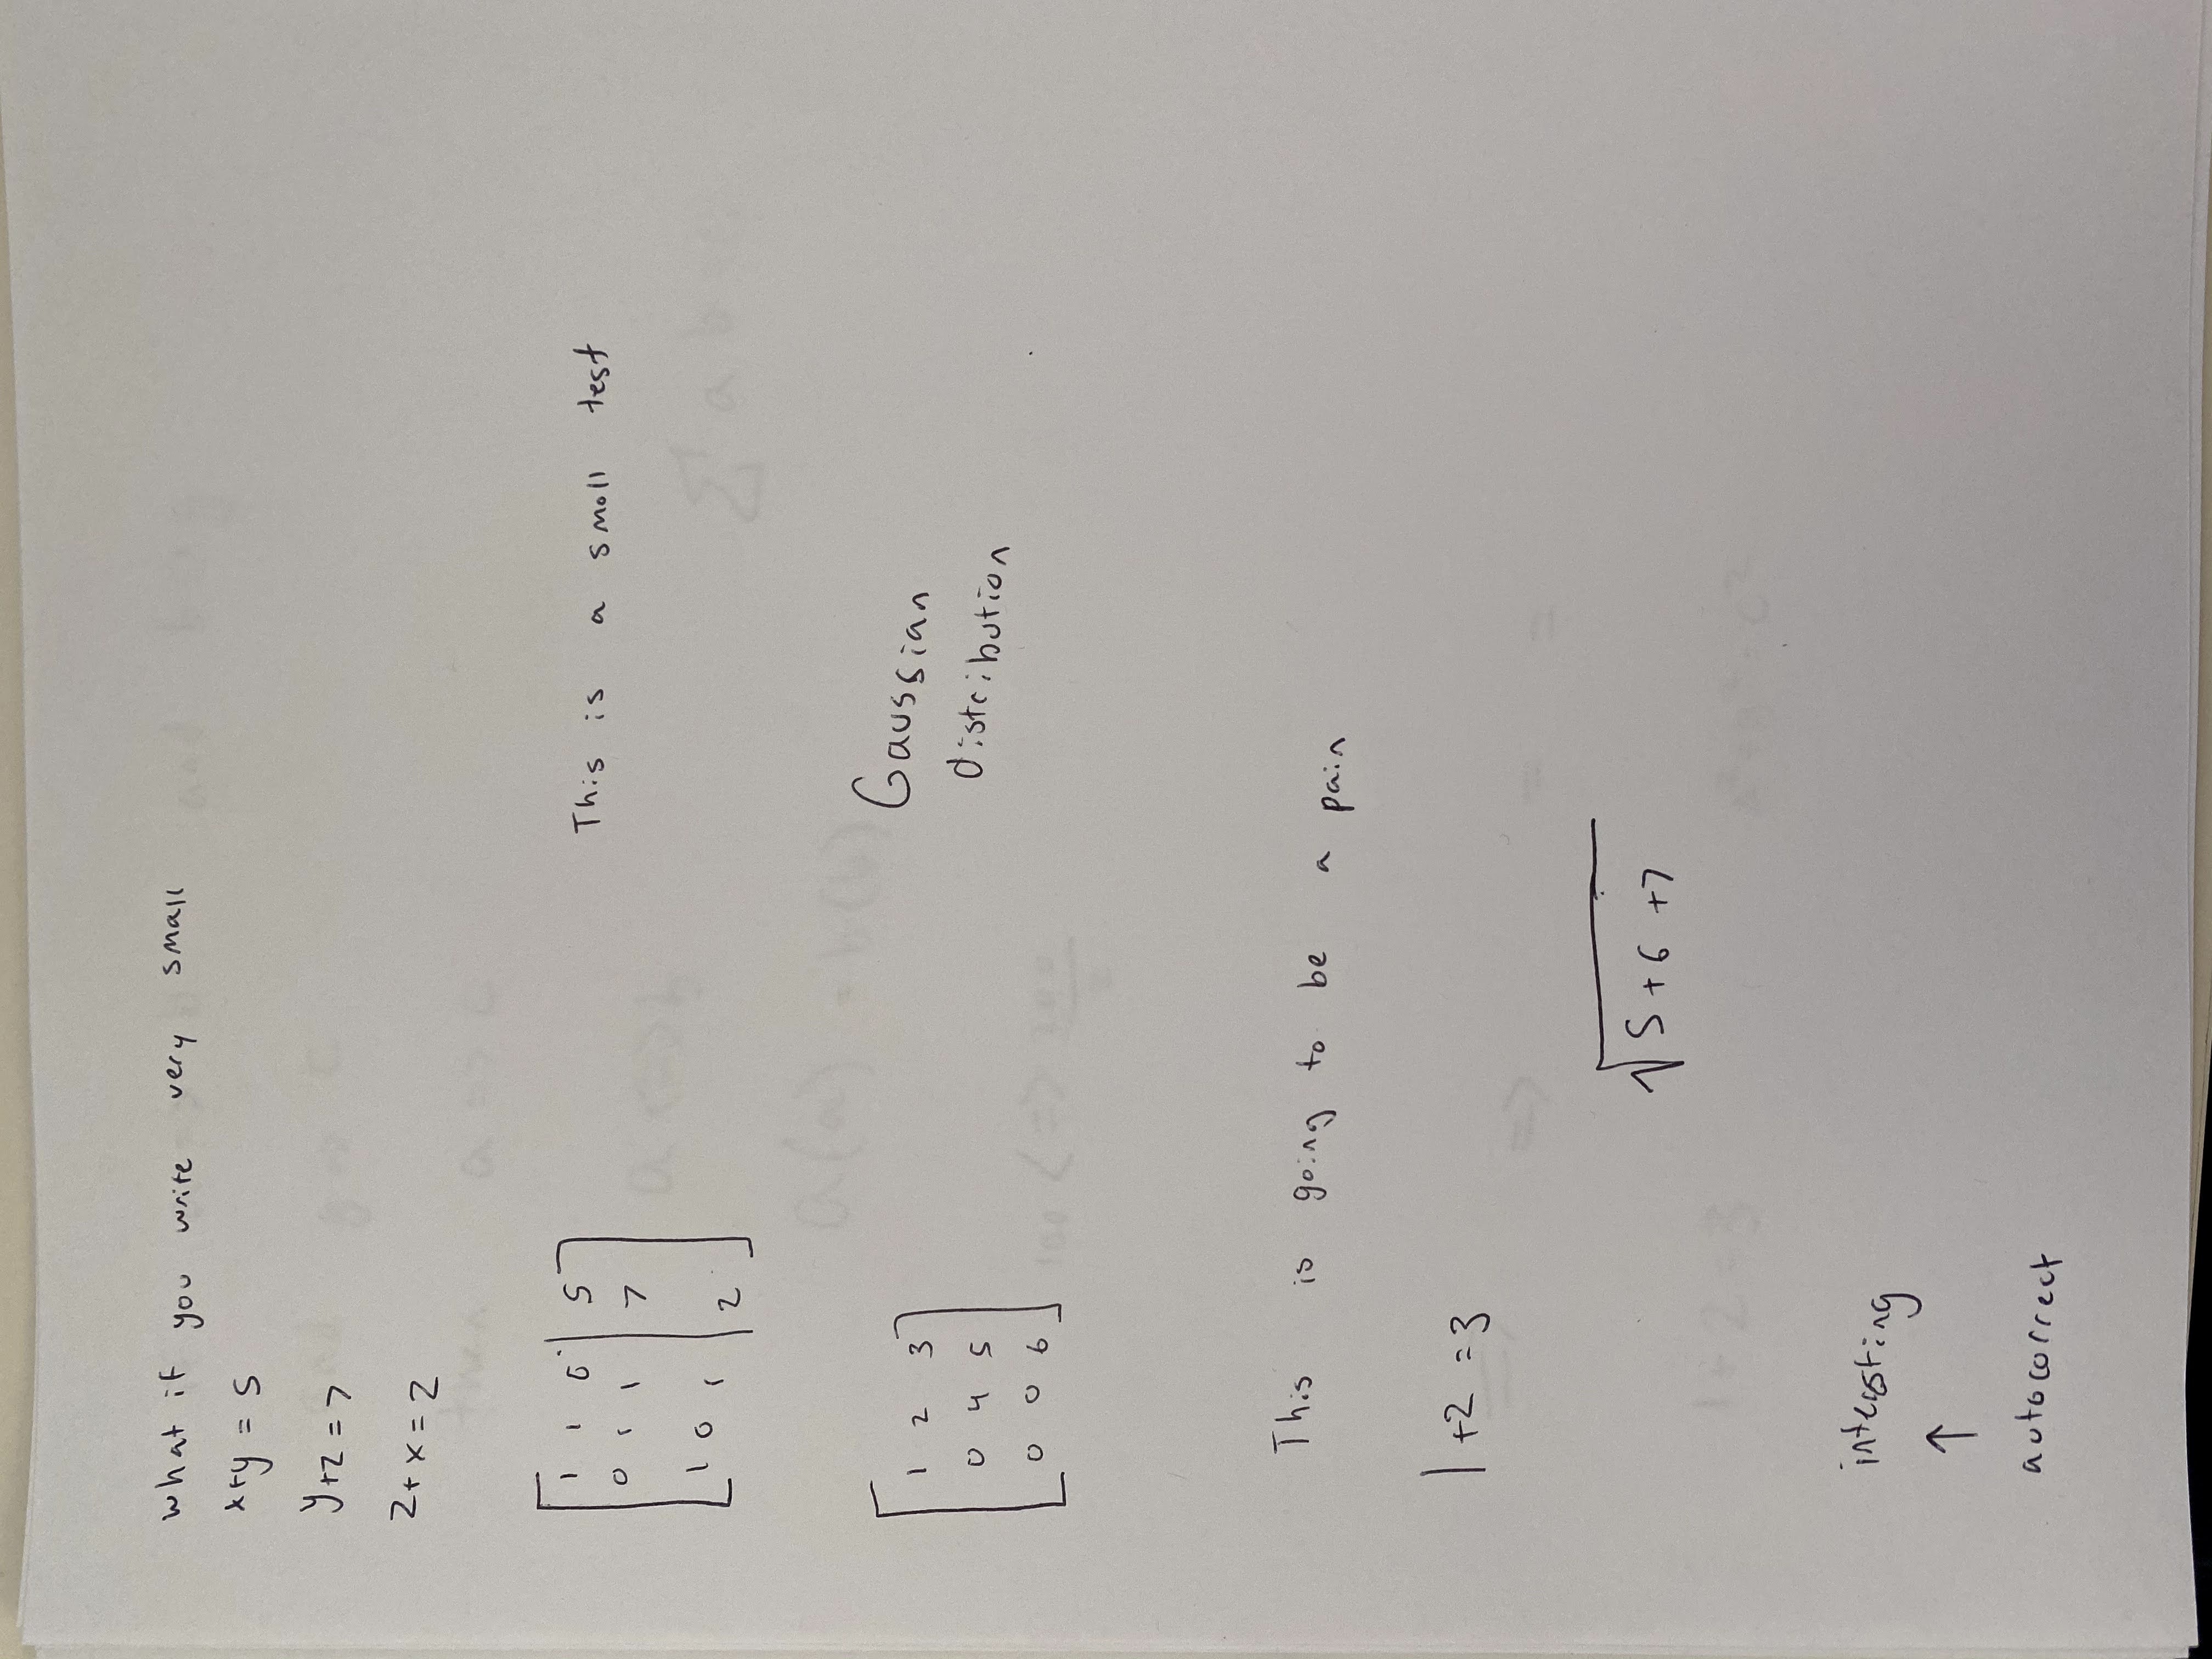 what if you write very small
x+y = 5
y+z = 7
z+x = 2
1 1 0 | 5
0 1 1 | 7
1 0 1 | 2
This is a smoll test
1 2 3
0 4 5
0 0 6
Gaussian
distribution
This is going to be a pain
1+2 = 3
√5+6+7
intersting
↑
autocorrect